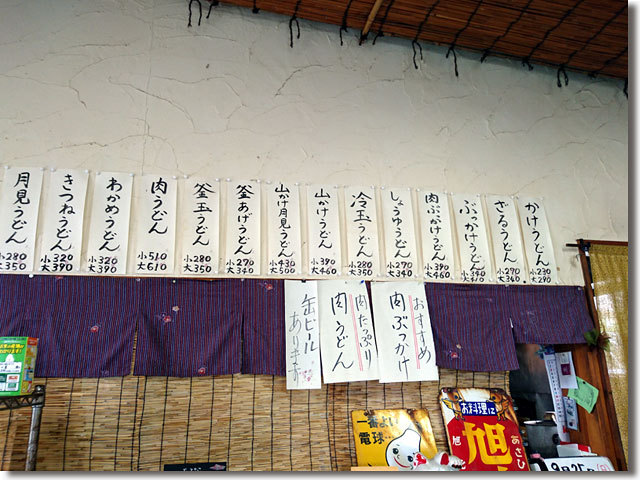 かけうどん
小230
大290
ざるうどん
小270
大340
ぶっかけうどん
小270
大340
肉ぶかけうどん
小390
大460
しょうゆうどん
小270
大340
冷玉うどん
小280
大350
山かけうどん
小390
大460
山かけ月見うどん
小430
大500
釜あげうどん
小270
大340
釜玉うどん
小280
大350
肉うどん
小510
大610
わかめうどん
小320
大390
きつねうどん
小320
大390
月見うどん
小280
大350
おすすめ
肉ぶっかけ
肉たっぷり
肉うどん
缶ビール
あります
一番よい
電球
お料理に
旭
あさひ
9月25日